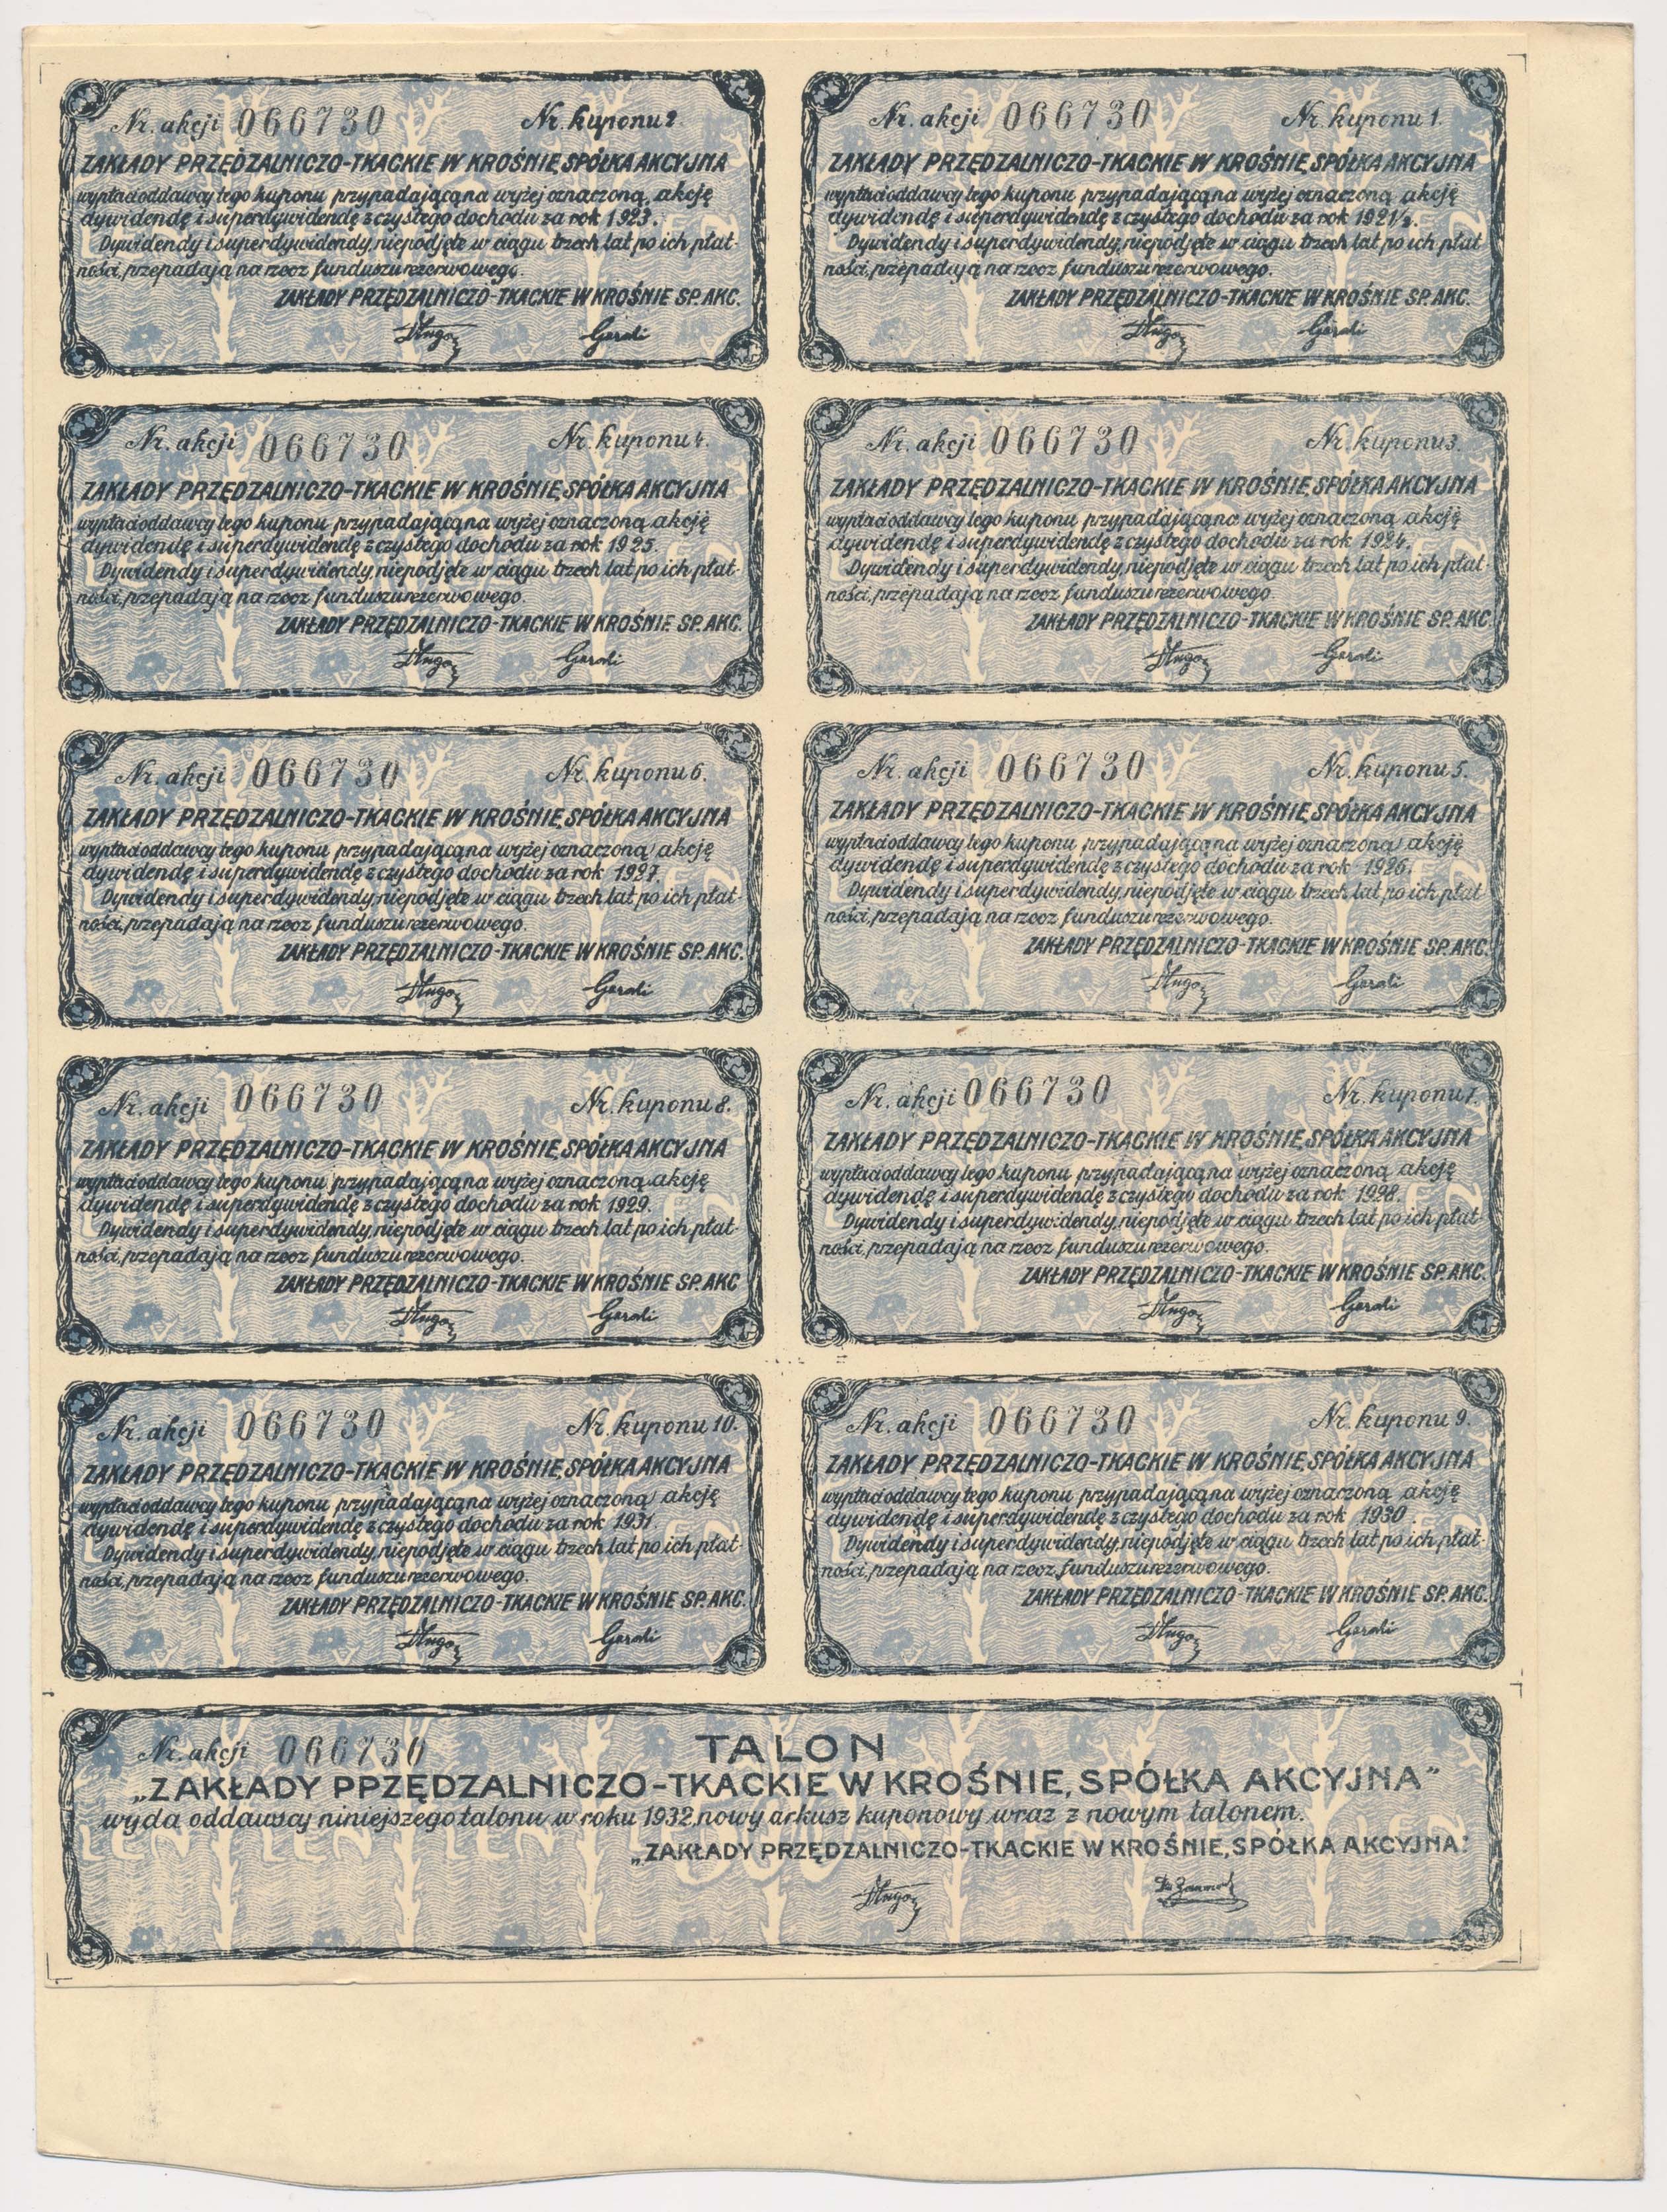 Nr. akcji 066730 Nr. kuponu 2.
ZAKŁADY PRZĘDZALNICZO-TKACKIE W KROŚNIE, SPÓŁKA AKCYJNA
wypłaci oddawcy tego kuponu przypadającą na wyżej oznaczoną akcję
dywidendę i superdywidendę z czystego dochodu za rok 1923.
Dywidendy i superdywidendy, niepodjęte w ciągu trzech lat po ich płat-
ności, przepadają na rzecz funduszu rezerwowego.
ZAKŁADY PRZĘDZALNICZO-TKACKIE W KROŚNIE SP. AKC.
Nr. akcji 066730 Nr. kuponu 1.
ZAKŁADY PRZĘDZALNICZO-TKACKIE W KROŚNIE, SPÓŁKA AKCYJNA
wypłaci oddawcy tego kuponu przypadającą na wyżej oznaczoną akcję
dywidendę i superdywidendę z czystego dochodu za rok 1921/2.
Dywidendy i superdywidendy, niepodjęte w ciągu trzech lat po ich płat-
ności, przepadają na rzecz funduszu rezerwowego.
ZAKŁADY PRZĘDZALNICZO-TKACKIE W KROŚNIE SP. AKC.
Nr. akcji 066730 Nr. kuponu 4.
ZAKŁADY PRZĘDZALNICZO-TKACKIE W KROŚNIE, SPÓŁKA AKCYJNA
wypłaci oddawcy tego kuponu przypadającą na wyżej oznaczoną akcję
dywidendę i superdywidendę z czystego dochodu za rok 1925.
Dywidendy i superdywidendy, niepodjęte w ciągu trzech lat po ich płat-
ności, przepadają na rzecz funduszu rezerwowego.
ZAKŁADY PRZĘDZALNICZO-TKACKIE W KROŚNIE SP. AKC.
Nr. akcji 066730 Nr. kuponu 3.
ZAKŁADY PRZĘDZALNICZO-TKACKIE W KROŚNIE, SPÓŁKA AKCYJNA
wypłaci oddawcy tego kuponu przypadającą na wyżej oznaczoną akcję
dywidendę i superdywidendę z czystego dochodu za rok 1924.
Dywidendy i superdywidendy, niepodjęte w ciągu trzech lat po ich płat-
ności, przepadają na rzecz funduszu rezerwowego.
ZAKŁADY PRZĘDZALNICZO-TKACKIE W KROŚNIE SP. AKC.
Nr. akcji 066730 Nr. kuponu 6.
ZAKŁADY PRZĘDZALNICZO-TKACKIE W KROŚNIE, SPÓŁKA AKCYJNA
wypłaci oddawcy tego kuponu przypadającą na wyżej oznaczoną akcję
dywidendę i superdywidendę z czystego dochodu za rok 1927.
Dywidendy i superdywidendy, niepodjęte w ciągu trzech lat po ich płat-
ności, przepadają na rzecz funduszu rezerwowego.
ZAKŁADY PRZĘDZALNICZO-TKACKIE W KROŚNIE SP. AKC.
Nr. akcji 066730 Nr. kuponu 5.
ZAKŁADY PRZĘDZALNICZO-TKACKIE W KROŚNIE, SPÓŁKA AKCYJNA
wypłaci oddawcy tego kuponu przypadającą na wyżej oznaczoną akcję
dywidendę i superdywidendę z czystego dochodu za rok 1926.
Dywidendy i superdywidendy, niepodjęte w ciągu trzech lat po ich płat-
ności, przepadają na rzecz funduszu rezerwowego.
ZAKŁADY PRZĘDZALNICZO-TKACKIE W KROŚNIE SP. AKC.
Nr. akcji 066730 Nr. kuponu 8.
ZAKŁADY PRZĘDZALNICZO-TKACKIE W KROŚNIE, SPÓŁKA AKCYJNA
wypłaci oddawcy tego kuponu przypadającą na wyżej oznaczoną akcję
dywidendę i superdywidendę z czystego dochodu za rok 1929.
Dywidendy i superdywidendy, niepodjęte w ciągu trzech lat po ich płat-
ności, przepadają na rzecz funduszu rezerwowego.
ZAKŁADY PRZĘDZALNICZO-TKACKIE W KROŚNIE SP. AKC
Nr. akcji 066730 Nr. kuponu 7.
ZAKŁADY PRZĘDZALNICZO-TKACKIE W KROŚNIE, SPÓŁKA AKCYJNA
wypłaci oddawcy tego kuponu przypadającą na wyżej oznaczoną akcję
dywidendę i superdywidendę z czystego dochodu za rok 1928.
Dywidendy i superdywidendy, niepodjęte w ciągu trzech lat po ich płat-
ności, przepadają na rzecz funduszu rezerwowego.
ZAKŁADY PRZĘDZALNICZO-TKACKIE W KROŚNIE SP. AKC.
Nr. akcji 066730 Nr. kuponu 10.
ZAKŁADY PRZĘDZALNICZO-TKACKIE W KROŚNIE, SPÓŁKA AKCYJNA
wypłaci oddawcy tego kuponu przypadającą na wyżej oznaczoną akcję
dywidendę i superdywidendę z czystego dochodu za rok 1931.
Dywidendy i superdywidendy, niepodjęte w ciągu trzech lat po ich płat-
ności, przepadają na rzecz funduszu rezerwowego.
ZAKŁADY PRZĘDZALNICZO-TKACKIE W KROŚNIE SP. AKC.
Nr. akcji 066730 Nr. kuponu 9.
ZAKŁADY PRZĘDZALNICZO-TKACKIE W KROŚNIE, SPÓŁKA AKCYJNA
wypłaci oddawcy tego kuponu przypadającą na wyżej oznaczoną akcję
dywidendę i superdywidendę z czystego dochodu za rok 1930.
Dywidendy i superdywidendy, niepodjęte w ciągu trzech lat po ich płat-
ności, przepadają na rzecz funduszu rezerwowego.
ZAKŁADY PRZĘDZALNICZO-TKACKIE W KROŚNIE SP. AKC.
Nr. akcji 066730 TALON
„ZAKŁADY PPZĘDZALNICZO-TKACKIE W KROŚNIE, SPÓŁKA AKCYJNA"
wyda oddawscy niniejszego talonu w roku 1932, nowy arkusz kuponowy wraz z nowym talonem.
„ZAKŁADY PRZĘDZALNICZO-TKACKIE W KROŚNIE, SPÓŁKA AKCYJNA"